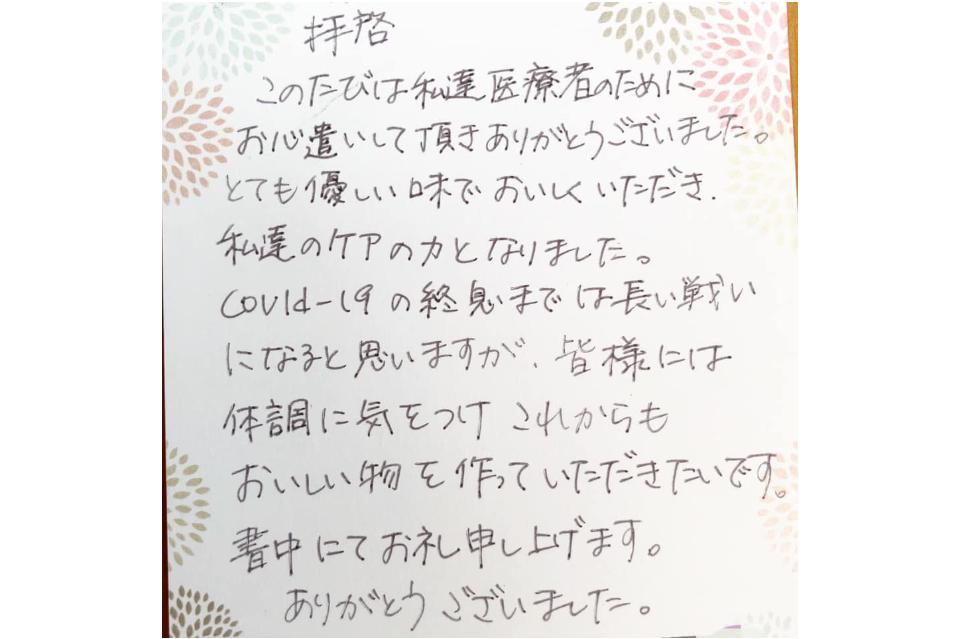 拝啓
このたびは私達医療者のために
お心遣いして頂きありがとうございました。
とても優しい味でおいしくいただき、
私達のケアの力となりました。
COVID-19の終息までは長い戦い
になると思いますが、皆様には
体調に気をつけこれからも
おいしい物を作っていただきたいです。
書中にてお礼申し上げます。
ありがとうございました。